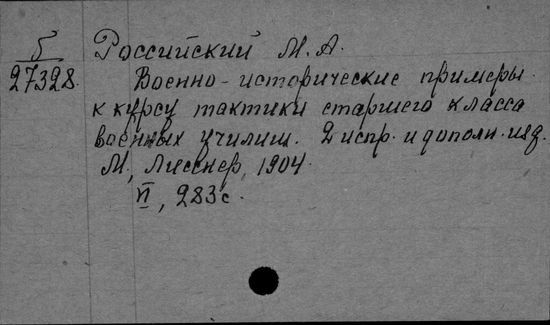 Б Российский М. А.
27328. Военно-исторические примеры
к курсу тактики старшего класса
военных училищ. 2 испр. и дополн. изд.
М., Лисснер, 1904.
VI, 283 с.